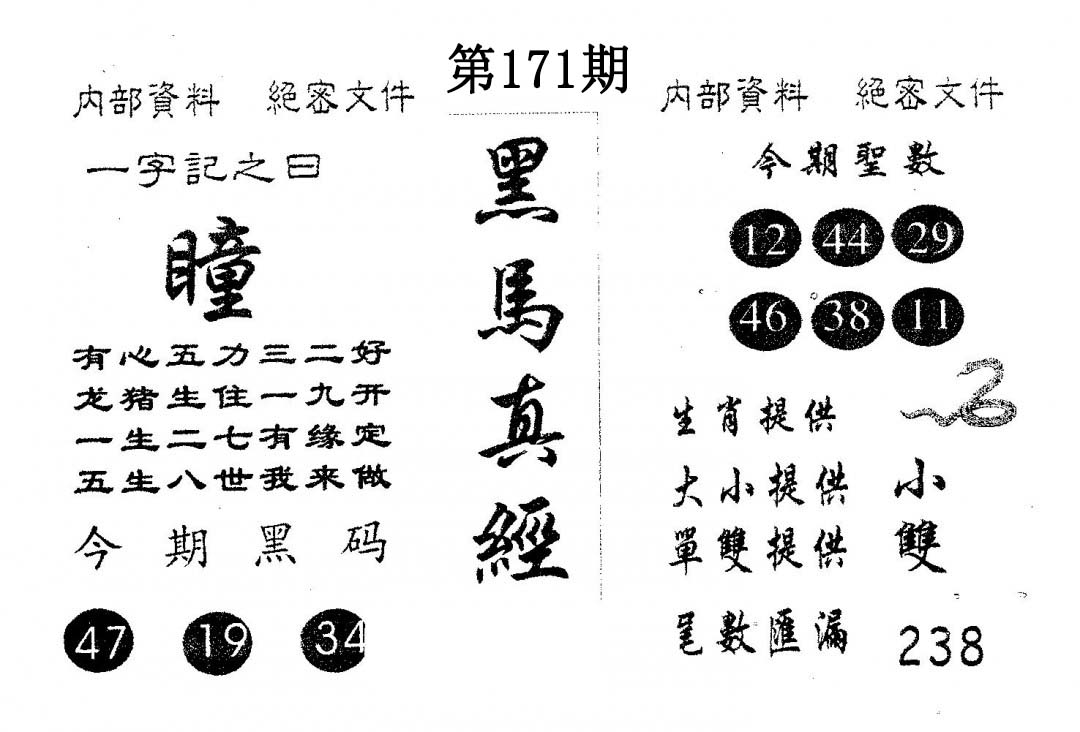 第171期
内部資料 絕密文件
一字記之曰
瞳
有心五力三二好
龙猪生住一九开
一生二七有缘定
五生八世我来做
今期黑码
47 19 34
黑馬真經
内部資料 絕密文件
今期聖數
12 44 29
46 38 11
生肖提供
大小提供 小
單雙提供 雙
尾數匯漏 238